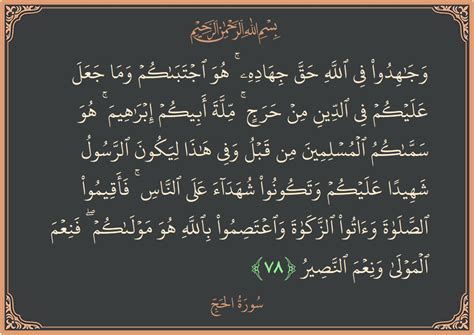 بِسْمِ اللَّهِ الرَّحْمَٰنِ الرَّحِيمِ
وَجَٰهِدُوا۟ فِى ٱللَّهِ حَقَّ جِهَادِهِۦ ۚ هُوَ ٱجْتَبَىٰكُمْ وَمَا جَعَلَ
عَلَيْكُمْ فِى ٱلدِّينِ مِنْ حَرَجٍ ۚ مِّلَّةَ أَبِيكُمْ إِبْرَٰهِيمَ ۚ هُوَ
سَمَّىٰكُمُ ٱلْمُسْلِمِينَ مِن قَبْلُ وَفِى هَٰذَا لِيَكُونَ ٱلرَّسُولُ
شَهِيدًا عَلَيْكُمْ وَتَكُونُوا۟ شُهَدَآءَ عَلَى ٱلنَّاسِ ۚ فَأَقِيمُوا۟
ٱلصَّلَوٰةَ وَءَاتُوا۟ ٱلزَّكَوٰةَ وَٱعْتَصِمُوا۟ بِٱللَّهِ هُوَ مَوْلَىٰكُمْ ۖ فَنِعْمَ
ٱلْمَوْلَىٰ وَنِعْمَ ٱلنَّصِيرُ ﴿٧٨﴾
سُورَةُ الحَجِّ